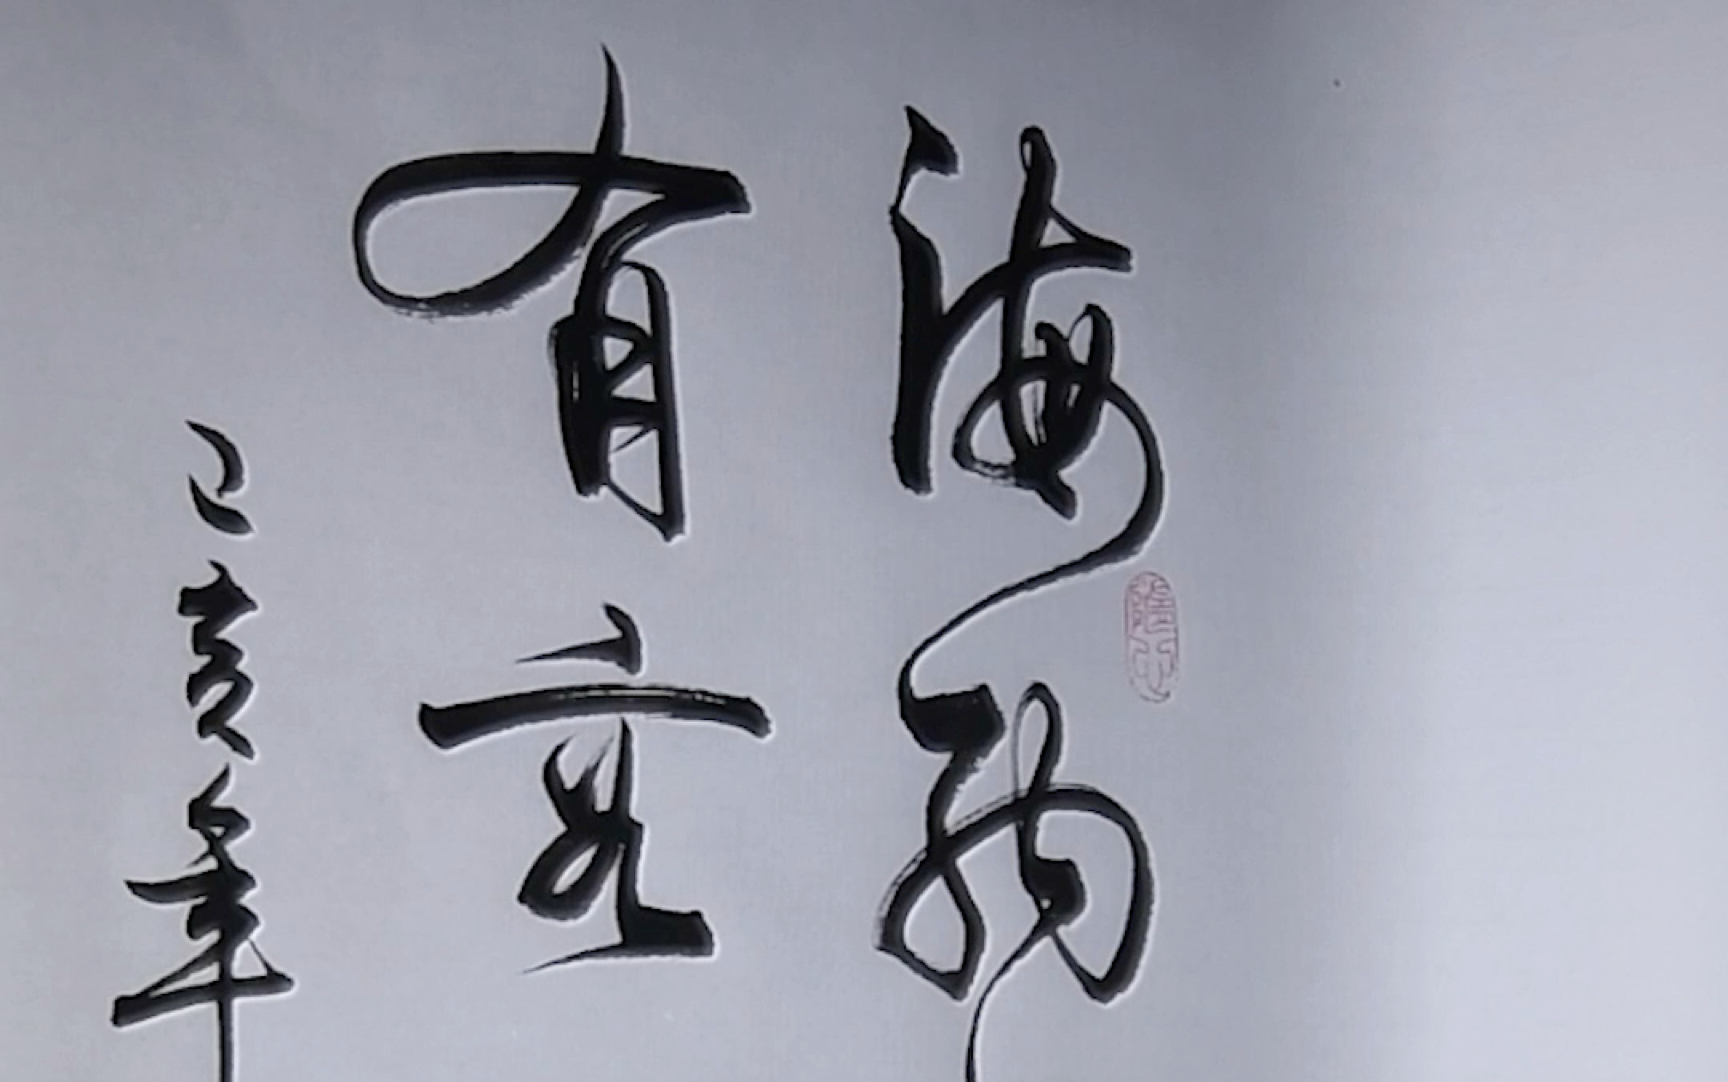 海纳
有容
己亥年